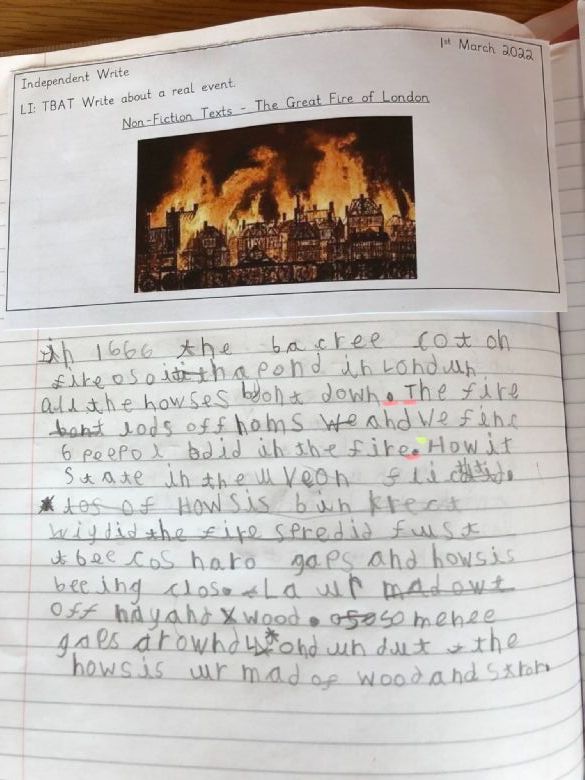 1st March 2022
Independent Write
LI: TBAT Write about a real event.
Non-Fiction Texts - The Great Fire of London
in 1666 the bacree cot on
fire oso it hapond in Londun
all the howses bont down. The fire
bant lods off homs We and We finc
6 peepol bdid in the fire. How it
State in the uveon
tos of Howsis bin krect
Wiy did the fire spredid fust
bee cos naro gaps and howsis
bee ing close La ur mad owt
off hay and wood. oso so menee
gaps arownd ond un dut the
howsis ur mad of wood and stror.